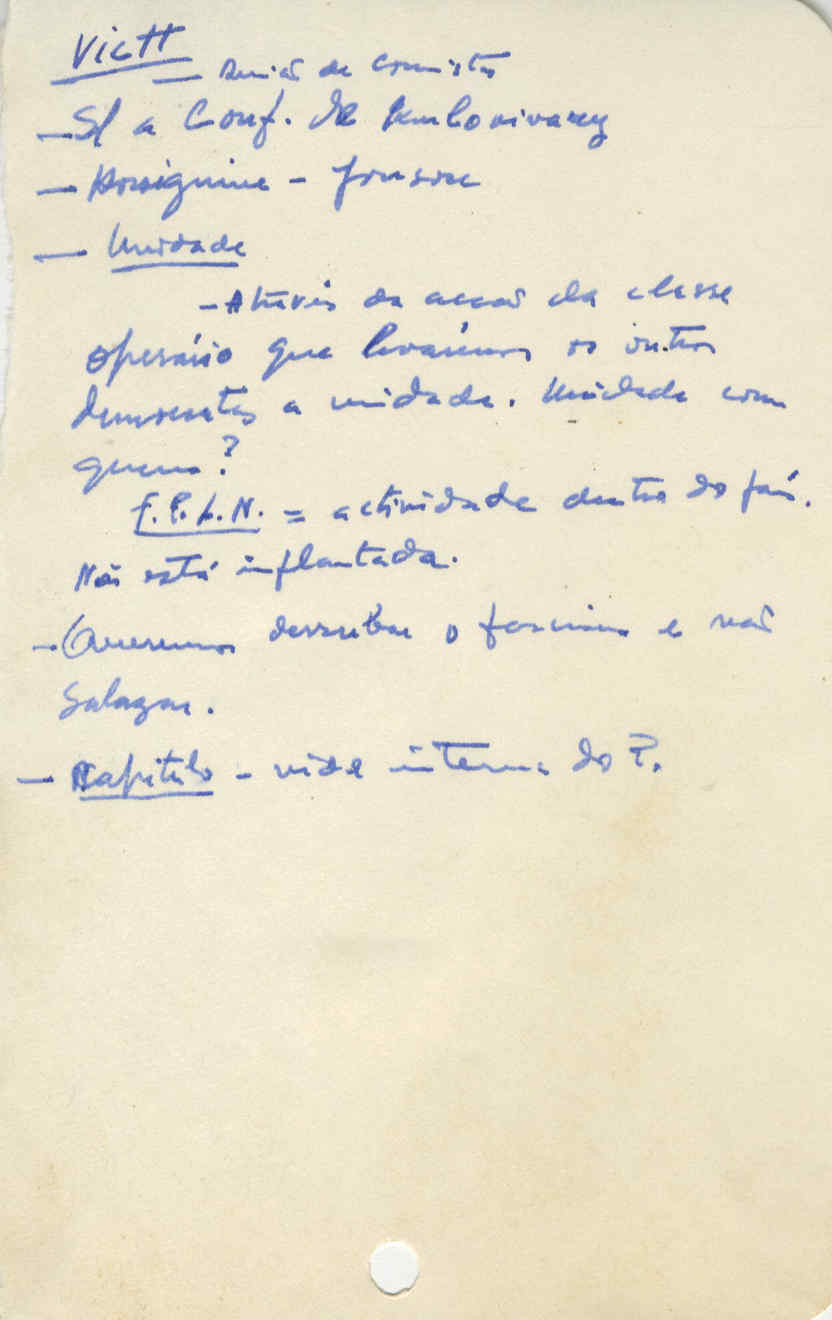 Victt
— Reunião de Comités
— S/ a Conf. de
—
— Unidade
— Através da acção da classe
operária que levaremos os outros
democratas a unidade. Unidade com
quem?
F.P.L.N. = actividade dentro do país.
Não está implantada.
— Queremos derrubar o fascismo e não
Salazar.
— Capítulo — vida interna do P.